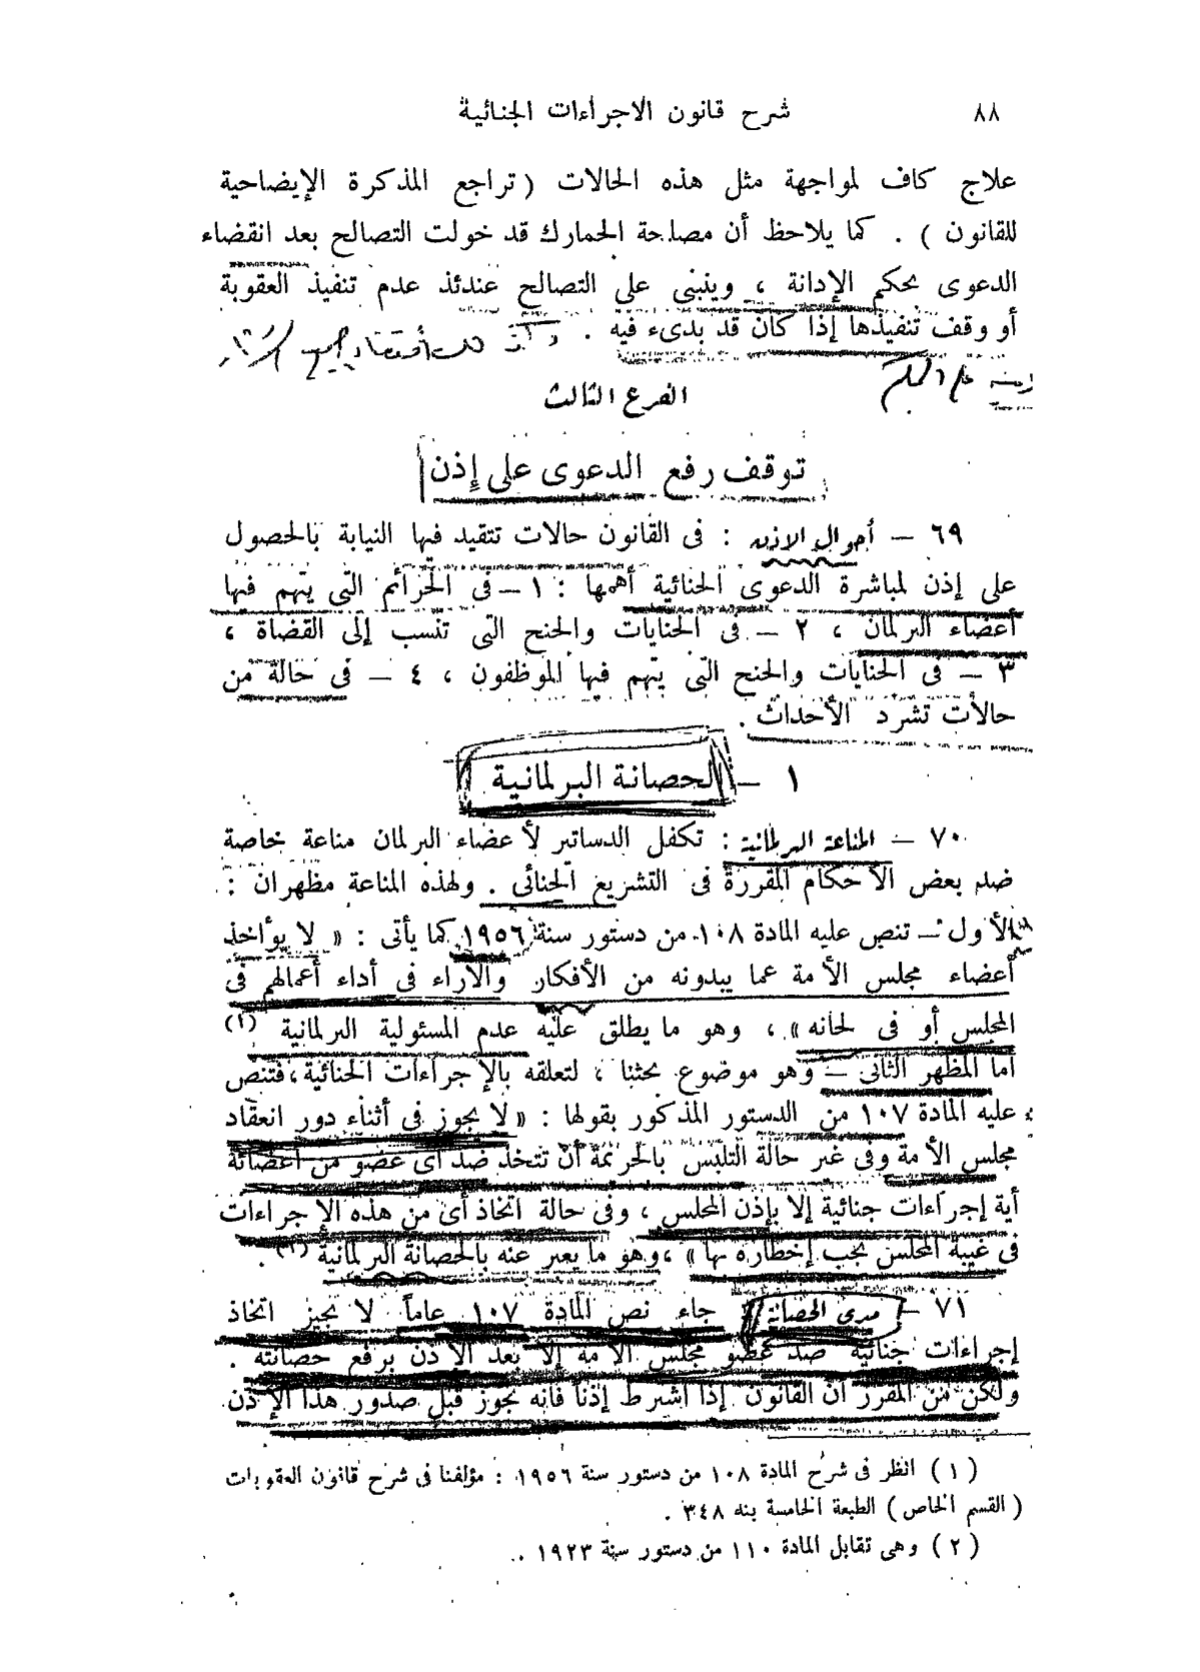 ٨٨ شرح قانون الاجراءات الجنائية
علاج كاف لمواجهة مثل هذه الحالات ( تراجع المذكرة الإيضاحية
للقانون ) . كما يلاحظ أن مصلحة الجمارك قد خولت التصالح بعد انقضاء
الدعوى بحكم الإدانة ، وينبنى على التصالح عندئذ عدم تنفيذ العقوبة
أو وقف تنفيذها إذا كان قد بدىء فيه .
على الحكم
الفرع الثالث
توقف رفع الدعوى على إذن
٦٩ — أحوال الاذن : فى القانون حالات تتقيد فيها النيابة بالحصول
على إذن لمباشرة الدعوى الجنائية أهمها : ١ — فى الجرائم التى يتهم فيها
أعضاء البرلمان ، ٢ — فى الجنايات والجنح التى تنسب إلى القضاة ،
٣ — فى الجنايات والجنح التى يتهم فيها الموظفون ، ٤ — فى حالة من
حالات تشرد الأحداث .
١ — الحصانة البرلمانية
٧٠ — المناعة البرلمانية : تكفل الدساتير لأعضاء البرلمان مناعة خاصة
ضد بعض الأحكام المقررة فى التشريع الجنائى . ولهذه المناعة مظهران :
الأول — تنص عليه المادة ١٠٨ من دستور سنة ١٩٥٦ كما يأتى : « لا يؤاخذ
أعضاء مجلس الأمة عما يبدونه من الأفكار والآراء فى أداء أعمالهم فى
المجلس أو فى لجانه » ، وهو ما يطلق عليه عدم المسئولية البرلمانية (١)
أما المظهر الثانى — وهو موضوع بحثنا ، لتعلقه بالإجراءات الجنائية ، فتنص
عليه المادة ١٠٧ من الدستور المذكور بقولها : « لا يجوز فى أثناء دور انعقاد
مجلس الأمة وفى غير حالة التلبس بالجريمة أن تتخذ ضد أى عضو من أعضائه
أية إجراءات جنائية إلا بإذن المجلس ، وفى حالة اتخاذ أى من هذه الإجراءات
فى غيبة المجلس يجب إخطاره بها » ، وهو ما يعبر عنه بالحصانة البرلمانية (٢) .
٧١ — مدى الحصانة : جاء نص المادة ١٠٧ عاماً لا يجيز اتخاذ
إجراءات جنائية ضد عضو مجلس الأمة إلا بعد الإذن برفع حصانته .
ولكن من المقرر أن القانون إذا اشترط إذناً فانه يجوز قبل صدور هذا الإذن
( ١ ) انظر فى شرح المادة ١٠٨ من دستور سنة ١٩٥٦ : مؤلفنا فى شرح قانون العقوبات
( القسم الخاص ) الطبعة الخامسة بند ٣٤٨ .
( ٢ ) وهى تقابل المادة ١١٠ من دستور سنة ١٩٢٣ .